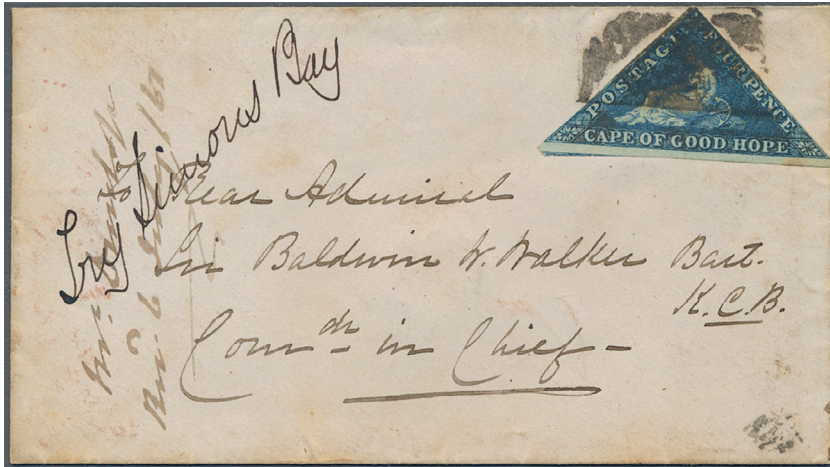 POSTAGE FOUR PENCE
CAPE OF GOOD HOPE
Try Simons Bay
Rear Admiral
Sir Baldwin W. Walker Bart.
K.C.B.
Comdr in Chief